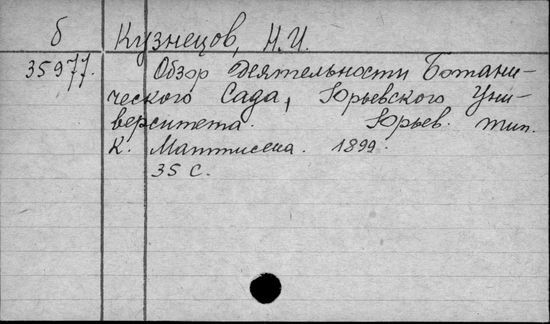 б Кузнецов, Н.И.
35977. Обзор деятельности Ботани-
ческого Сада, Юрьевского Уни-
верситета. Юрьев. тип.
К. Маттисена. 1899.
35 с.